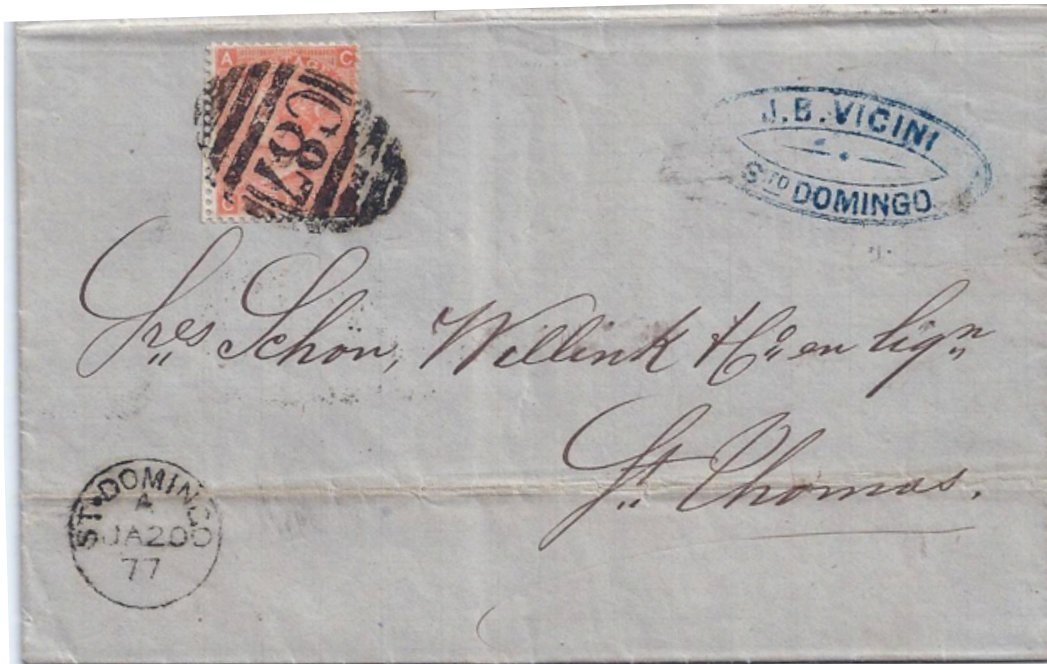 A C
C87
C
J. B. VICINI
STO DOMINGO
Sres Schön, Willink & Co en liqn
St. Thomas.
ST. DOMINGO
A
JA 20
77